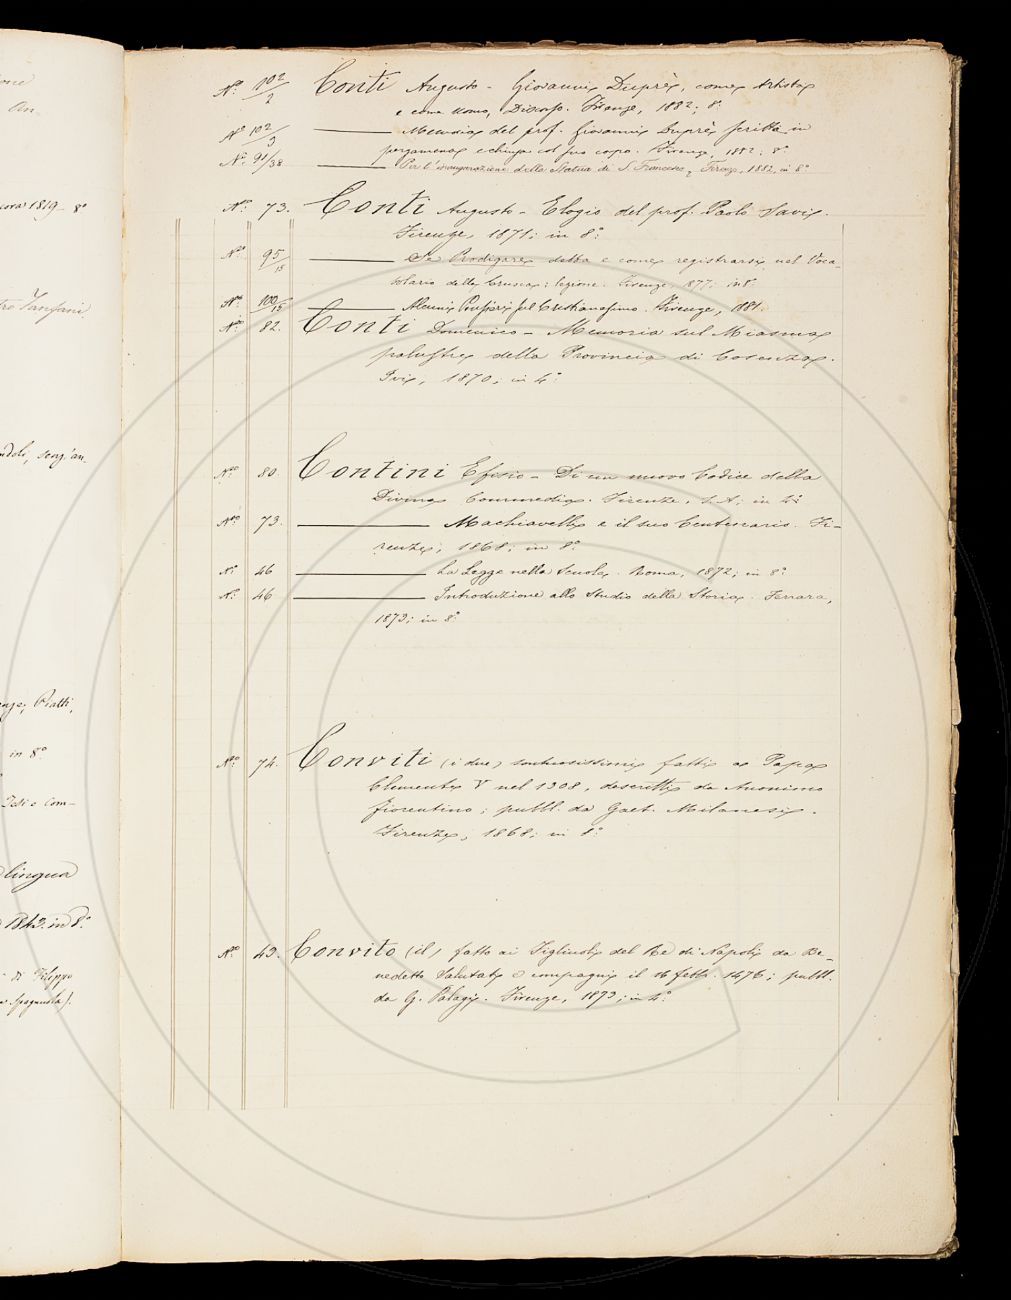 Nº 102/2 Conti Augusto - Giovanni Duprè, come Artista
e come Uomo, Discorso. Firenze, 1882; 8º
Nº 102/3 ——— Memoria del prof. Giovanni Duprè scritta in
pergamena e chiusa col suo corpo. Firenze, 1882; 8º
Nº 91/38 ——— Per l'inaugurazione della Statua di S. Francesco, Firenze, 1882, in 8º
Nº 73. Conti Augusto - Elogio del prof. Paolo Savi.
Firenze, 1871; in 8º
Nº 95/15 ——— Se Prodigare debba e come registrarsi nel Voca-
bolario della Crusca; lezione. Firenze, 1877; in 8º
Nº 100/15 ——— Alcuni Pensieri sul Cristianesimo. Firenze, 1881.
Nº 82. Conti Domenico - Memoria sul Miasma
palustre della Provincia di Cosenza.
Ivi, 1870; in 4º
Nº 80. Contini Efisio - Di un nuovo Codice della
Divina Commedia. Firenze, S.A; in 4º
Nº 73. ——— Machiavelli e il suo Centenario. Fi-
renze, 1868; in 8º
Nº 46 ——— La Legge nella Scuola. Roma, 1872; in 8º
Nº 46 ——— Introduzione allo Studio della Storia. Ferrara,
1873; in 8º
Nº 74. Conviti (i due) sontuosissimi fatti a Papa
Clemente V nel 1308, descritti da Anonimo
fiorentino; pubbl. da Gaet. Milanesi.
Firenze, 1868; in 8º
Nº 43. Convito (il) fatto ai Figliuoli del Re di Napoli da Be-
nedetto Salutati e compagni il 16 febb. 1476; pubbl.
da G. Palagi. Firenze, 1873; in 4º
An-
1819 - 8º
Tanfani
Piatti,
in 8º
Tesi e com-
lingua
1843. in 8º
di Filippo
Spagnuola).